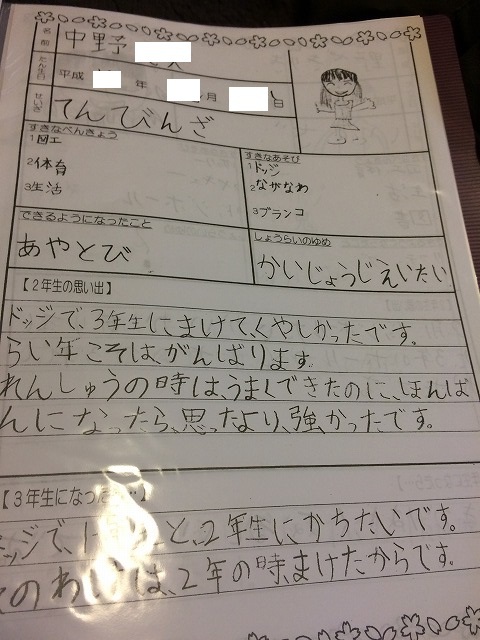 名前
中野
たん生日
平成 年 月 日
せいざ
てんびんざ
すきなべんきょう
1図工
2体育
3生活
すきなあそび
1ドッジ
2ながなわ
3ブランコ
できるようになったこと
あやとび
しょうらいのゆめ
かいじょうじえいたい
【2年生の思い出】
ドッジで、3年生にまけて、くやしかったです。
らい年こそは、がんばります。
れんしゅうの時は、うまくできたのに、ほんば
んになったら、思ったより、強かったです。
【3年生になった
ドッジで、1 と、2年生にかちたいです。
は、2年の時、まけたからです。